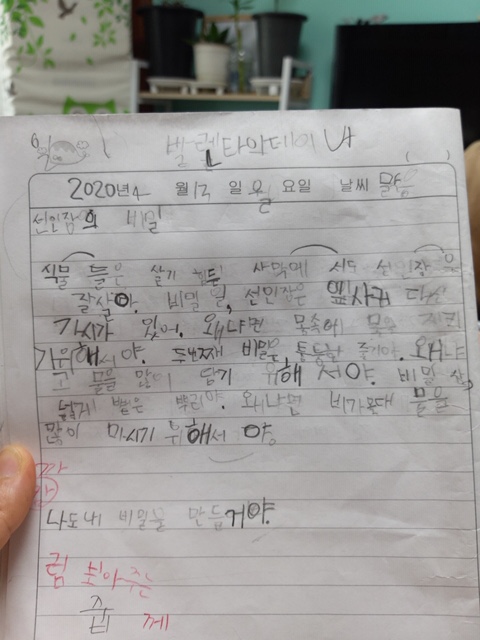 발렌타인데이 나
2020년 4월 13일 월요일 날씨 맑음
선인장의 비밀
식물들은 살기 힘든 사막에서도 선인장은
잘살아. 비밀 일, 선인장은 잎사귀 다신
가시가 있어. 왜냐면 몸속에 물을 지키
기위해서야. 두번째 비밀은, 통통한 줄기야. 왜냐
고 물을 많이 담기 위해서야. 비밀 삼,
넓게 뻗은 뿌리야. 왜냐면 비가올때 물을
많이 마시기 위해서 야.
나도 내 비밀을 만들거야.
럼 찾아주는
줍 께